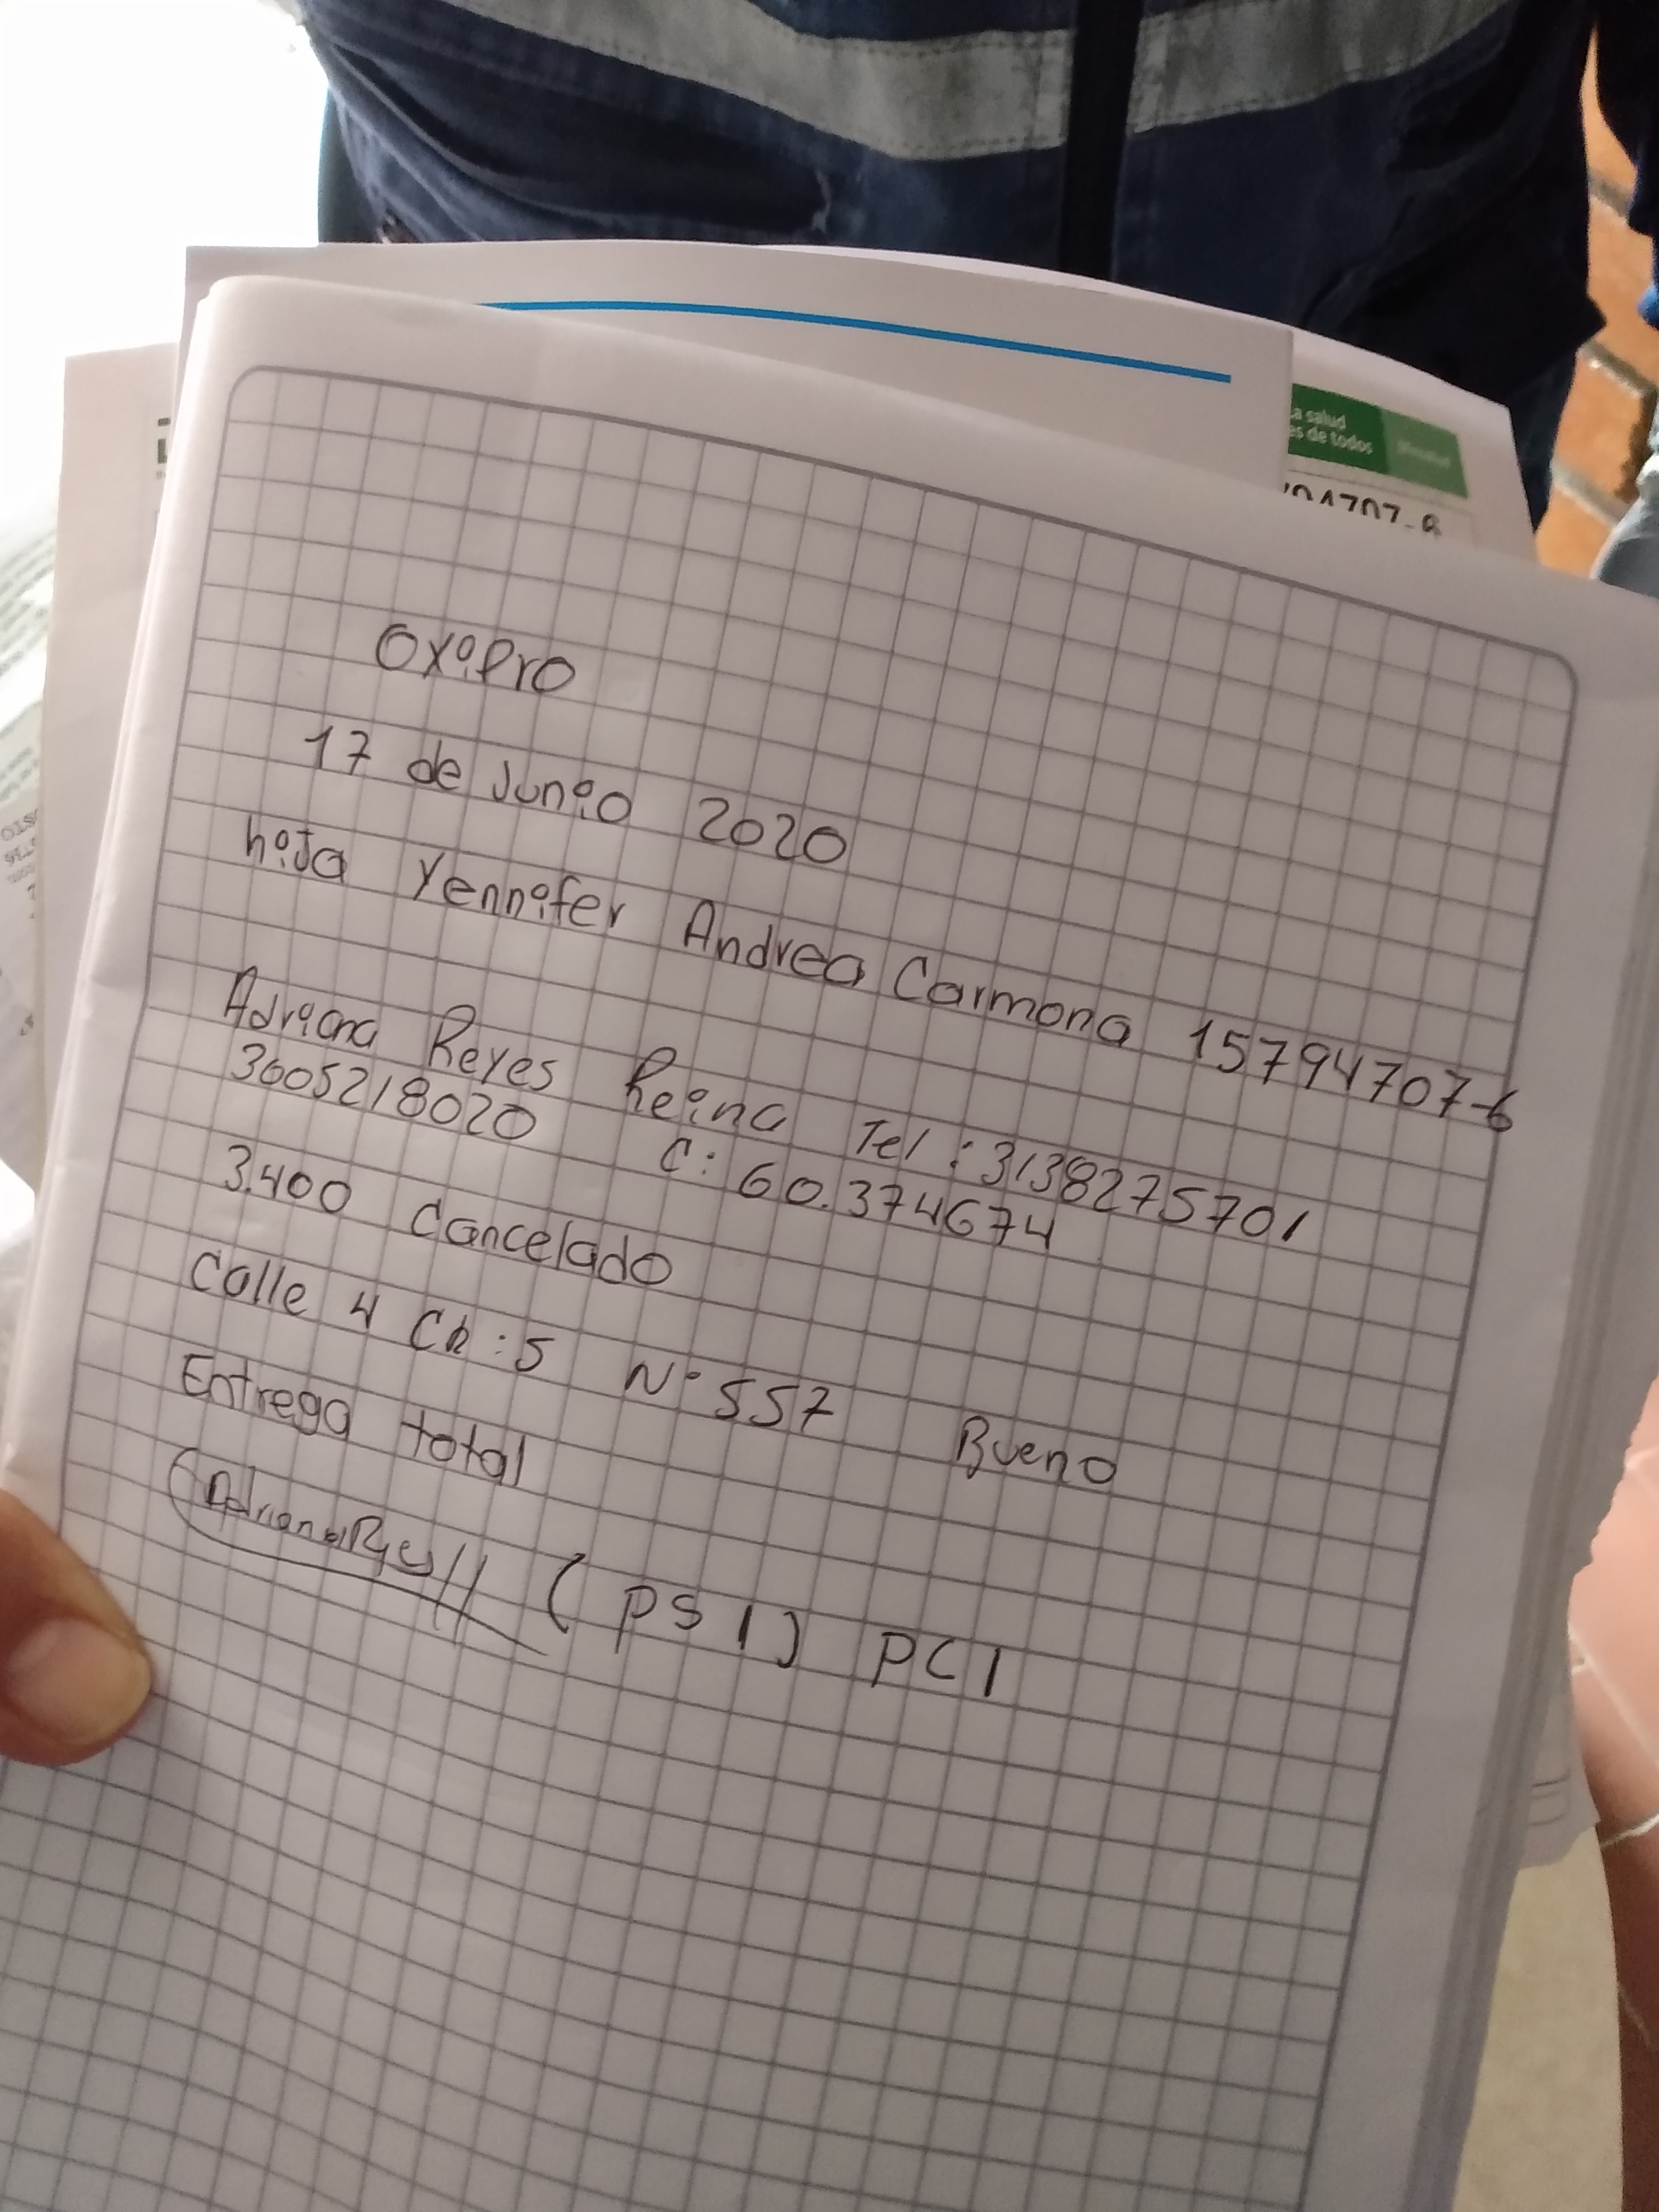 a salud
es de todos
04707-6
OxiPro
17 de Junio 2020
hija Yennifer Andrea Carmona 15794707-6
Adriana Reyes Reina Tel: 3138275701
3005218020 C: 60.374674
3.400 Cancelado
Calle 4 CR: 5 N° 557 Bueno
Entrega total
(PSI) PCI